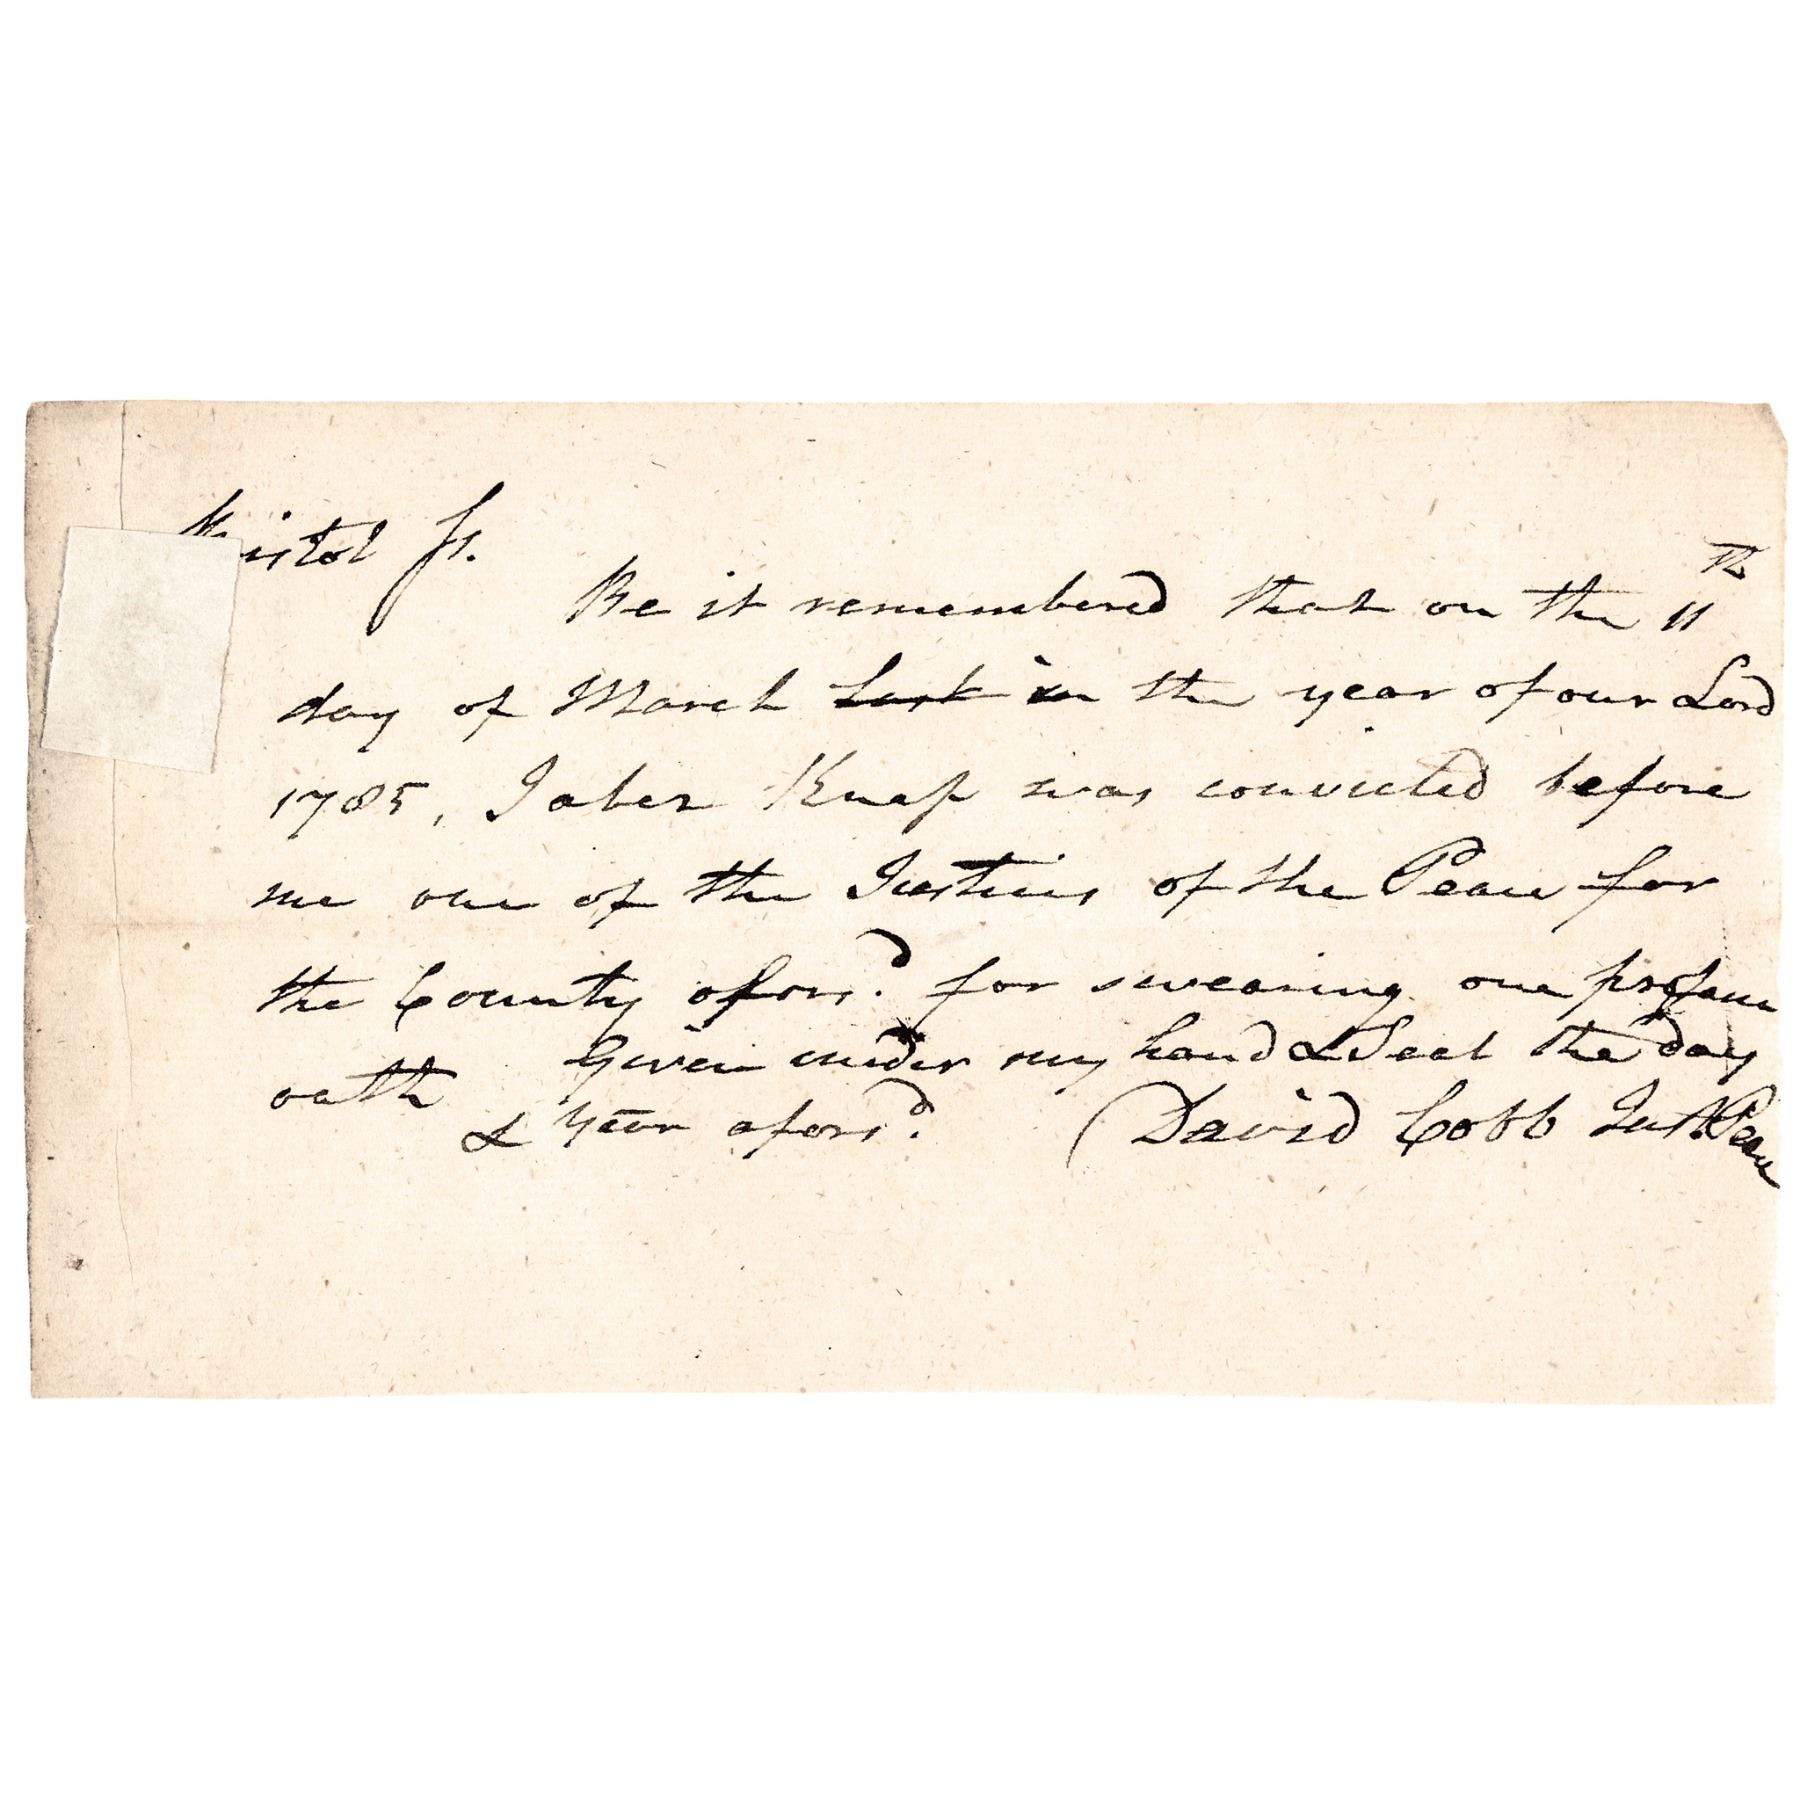 Bristol ss.
Be it remembered that on the 11th
day of March last in the year of our Lord
1785, Jabez Knap was convicted before
me one of the Justices of the Peace for
the County afors.d for swearing one profane
oath Given under my hand & Seal the day
& Year afors.d David Cobb Just. Peace